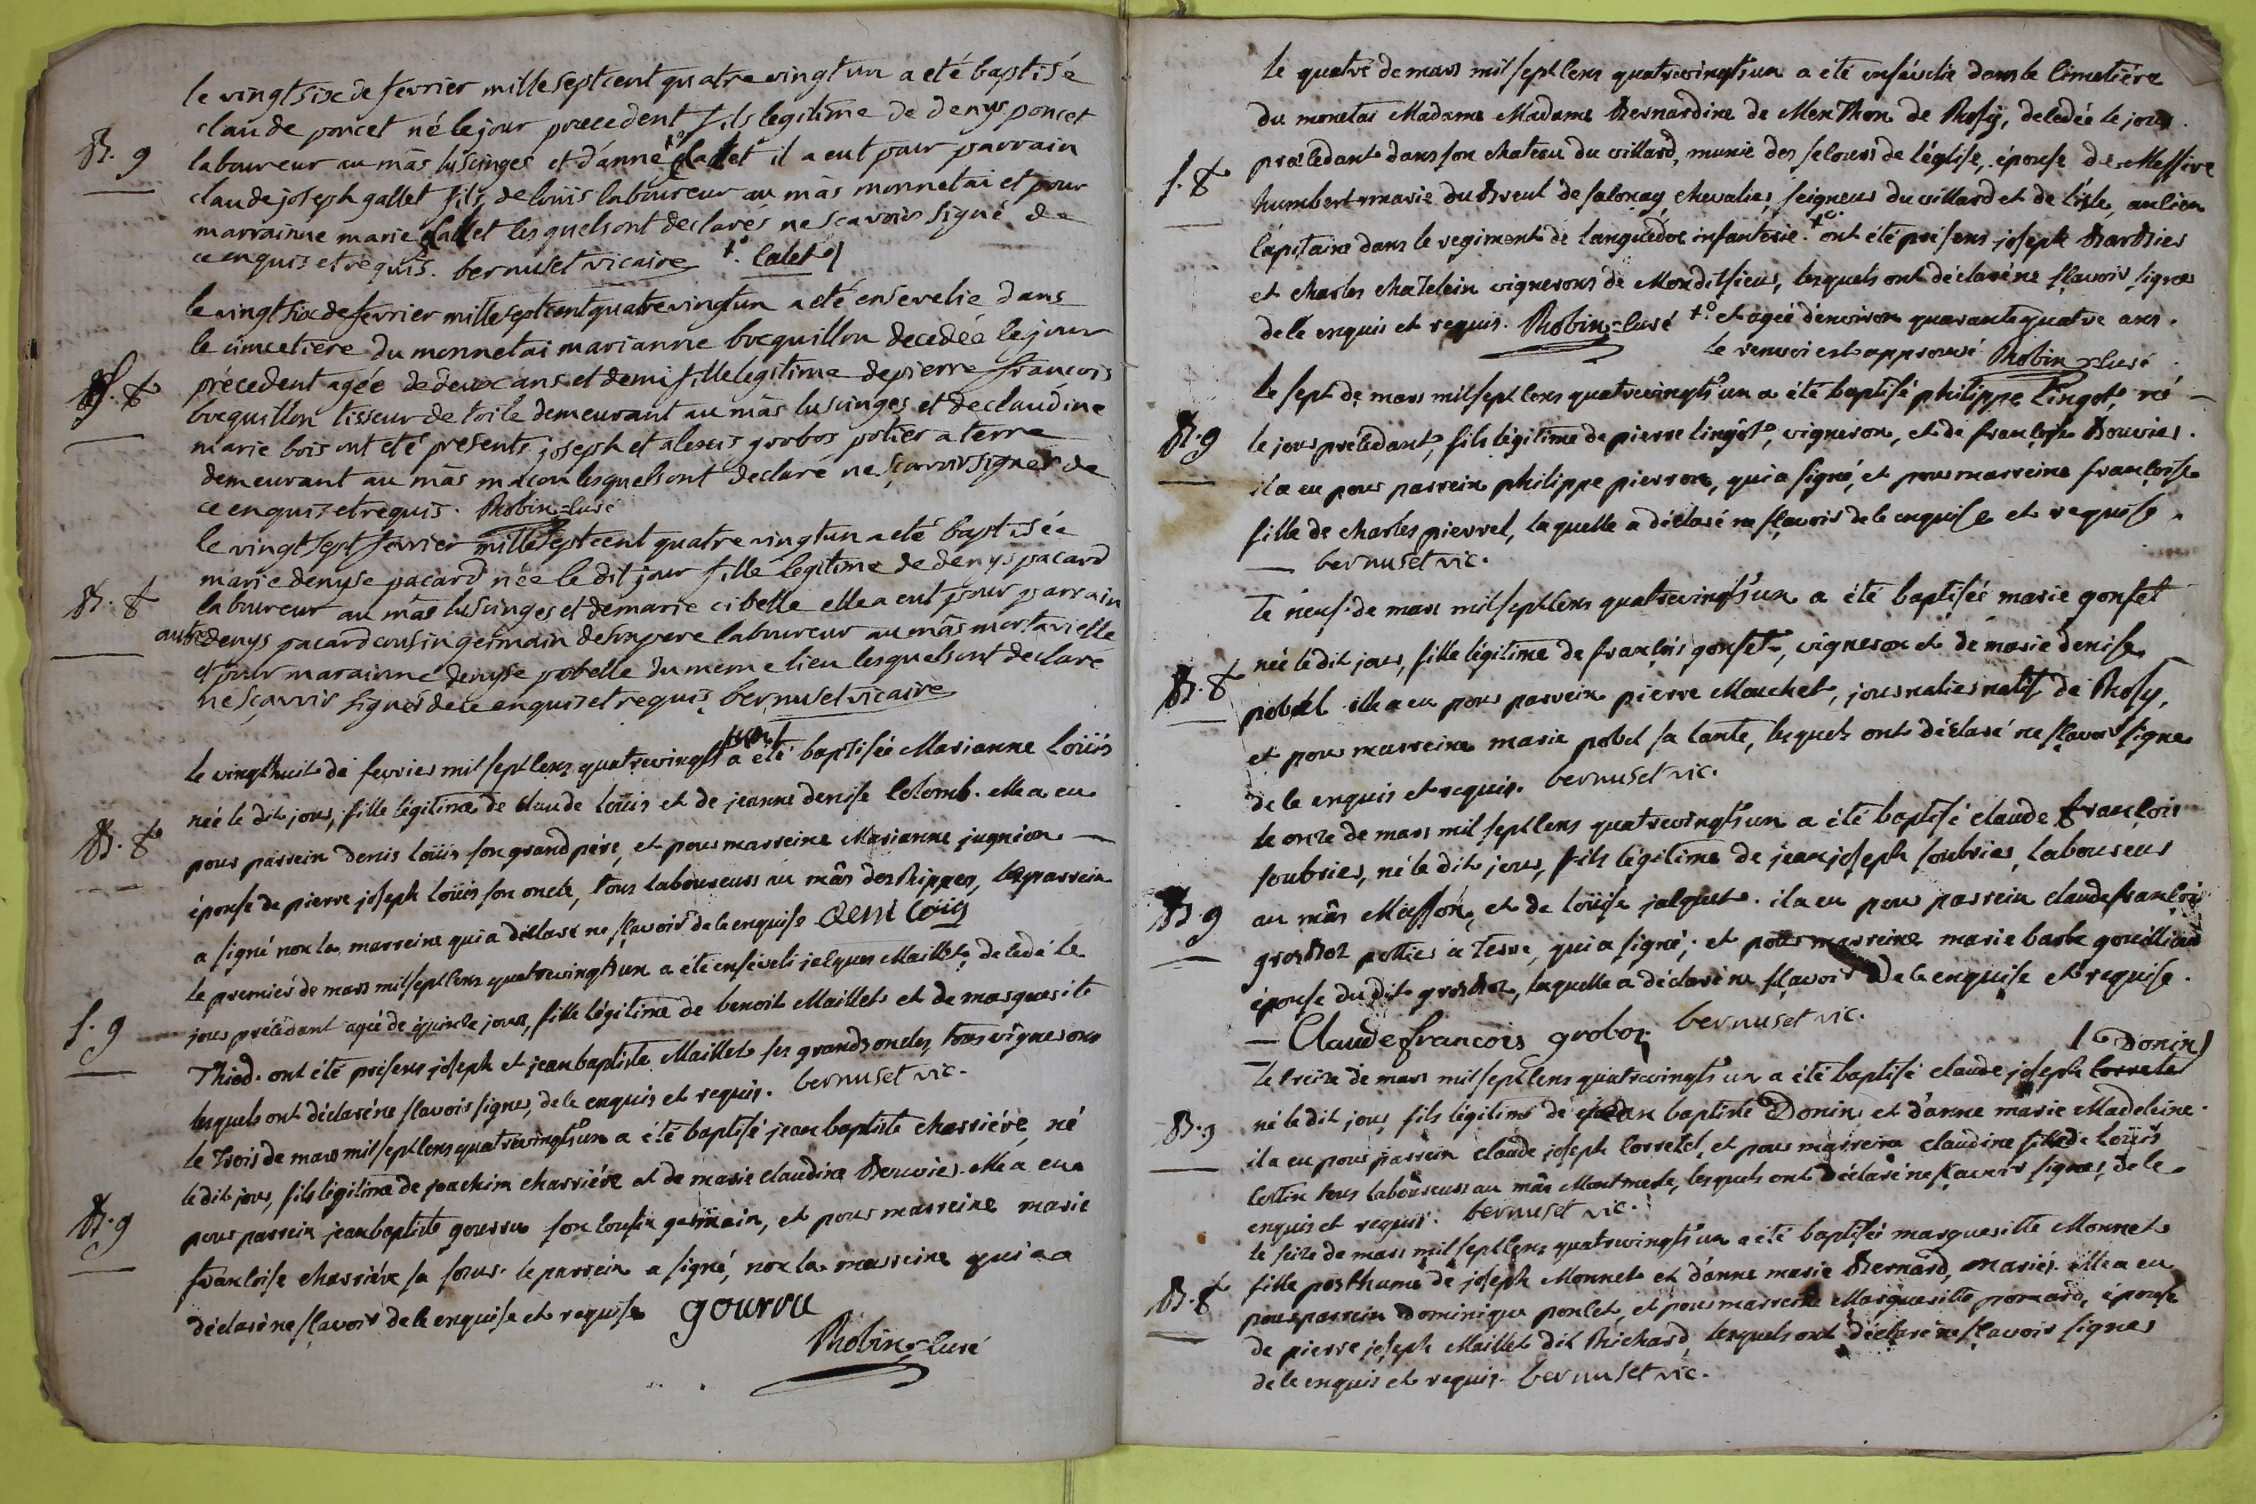 le vingt six de fevrier mille sept cent quatre vingt un a eté baptisé
B. g claude poncet né le jour precedent fils legitime de denys poncet
laboureur au mâs luscinges et d'anne il a eut pour parrain
claude joseph gallet fils de loüis laboureur au mâs monnetai et pour
marrainne marie lesquels ont declarés ne scavoir signé de
ce enquis et requis. bernuset vicaire +° Calet
le vingt six de fevrier mille sept cent quatre vingt un a eté ensevelie dans
le cimcetiere du monnetai marianne bocquillon decedée le jour
S. f précedent agée de deux ans et demi fille legitime de pierre francois
bocquillon tisseur de toile demeurant au mâs luscinges et de claudine
marie bois ont eté presents joseph et alexis grobos potier a terre
demeurant au mâs macon lesquels ont declaré ne scavoir signer de
ce enquis et requis. Robin curé
le vingt sept fevrier mille sept cent quatre vingt un a eté baptisée
marie denyse pacard née le dit jour fille legitime de denys pacard
B. f laboureur au mâs luscinges et de marie cibelle elle a eut pour parrain
autre denys pacard cousin germain de son pere laboureur au mâs mortarielle
et pour marainne denyse pobelle du meme lieu lesquels ont declaré
ne sçavoir signer de ce enquis et requis bernuset vicaire
le vingthuit de fevrier mil sept cens quatrevingt un a été baptisée Marianne Loüis
née le dit jour, fille légitime de Claude Loüis et de jeanne denise Colomb. elle a eu
B. f pour parrein denis Loüis son grand pére, et pour marreine Marianne jugnion
épouse de pierre joseph Loüis son oncle, tous laboureurs au mâs des Rippes, le parrein
a signé non la marreine qui a declaré ne sçavoir de ce enquise deni Loüis
le premier de mars mil sept cens quatrevingts un a été enséveli jacques Maillet, decédé le
S. g jour précédant agé de quinze jours, fils légitime de benoit Maillet et de marguerite
Thiod. ont été présens joseph et jean baptiste Maillet ses grands oncles, tous vignerons
lesquels ont déclaré ne sçavoir signer, de ce enquis et requis. bernuset vic.
le trois de mars mil sept cens quatrevingts un a été baptisé jean baptiste charriére, né
le dit jour, fils légitime de joachim charriére et de marie claudine Bouvier. elle a eu
B. g pour parrein jean baptiste gourru son cousin germain, et pour marreine marie
francoise charriére sa soeur. le parrein a signé, non la marreine qui a
déclaré ne sçavoir de ce enquise et requise gourru
Robin curé
le quatre de mars mil sept cens quatrevingts un a été ensévelie dans le cimetiére
du monetai Madame Madame Bernardine de Menthon de Rosy, decédée le jour
S. f précédant dans son chateau du villard, munie des secours de l'église, épouse de Messire
humbert marie du Breul de sacconay chevalier, seigneur du villard et de l'isle, ancien
capitaine dans le regiment de languedoc infanterie. +° ont été présens joseph Barbier
et charles chatelein vignerons de Mondit sieur, lesquels ont déclaré ne sçavoir signer
de ce enquis et requis. Robin curé +° et agée d'environ quarante quatre ans.
le renvoi est approuvé Robin curé
le sept de mars mil sept cens quatrevingts un a été baptisé philippe Lingot, né
B. g le jour précédant, fils légitime de pierre lingot, vigneron, et de françoise Bouvier.
il a eu pour parrein philippe pierron, qui a signé, et pour marreine françoise
fille de charles pierrel, laquelle a déclaré ne sçavoir de ce enquise et requise.
bernuset vic.
Le neuf de mars mil sept cens quatrevingts un a été baptisée marie gonset
née le dit jour, fille légitime de françois gonset, vigneron et de marie denise
B. f pobel elle a eu pour parrein pierre Mouchet, journalier natif de Rosy,
et pour marreine marie pobel sa tante, lesquels ont déclaré ne sçavoir signer
de ce enquis et requis. bernuset vic.
le onze de mars mil sept cens quatrevingts un a été baptisé claude françois
soubrier, né le dit jour, fils légitime de jean joseph soubrier, laboureur
B. g au mâs Masson, et de loüise jacquet. il a eu pour parrein claude françois
grosboz pottier à terre, qui a signé; et pour marreine marie barbe
épouse du dit grosboz, laquelle a déclaré ne sçavoir de ce enquise et requise.
Claude francois groboz bernuset vic.
Donin
Le treize de mars mil sept cens quatrevingts un a été baptisé claude joseph
B. g né le dit jour, fils légitime de jean baptiste Donin et d'anne marie Madeleine.
il a eu pour parrein claude joseph Corretel, et pour marreine claudine fille de Loüis
Cottin tous laboureurs au mâs Montmerle, lesquels ont déclaré ne sçavoir signer, de ce
enquis et requis. bernuset vic.
le seize de mars mil sept cens quatrevingts un a été baptisée marguerite Monnet
B. f fille posthume de joseph Monnet et d'anne marie Bernard, mariés. elle a eu
pour parrein Dominique poncet, et pour marreine Marguerite promard, épouse
de pierre joseph Maillet dit Richard, lesquels ont déclaré ne sçavoir signer
de ce enquis et requis. bernuset vic.